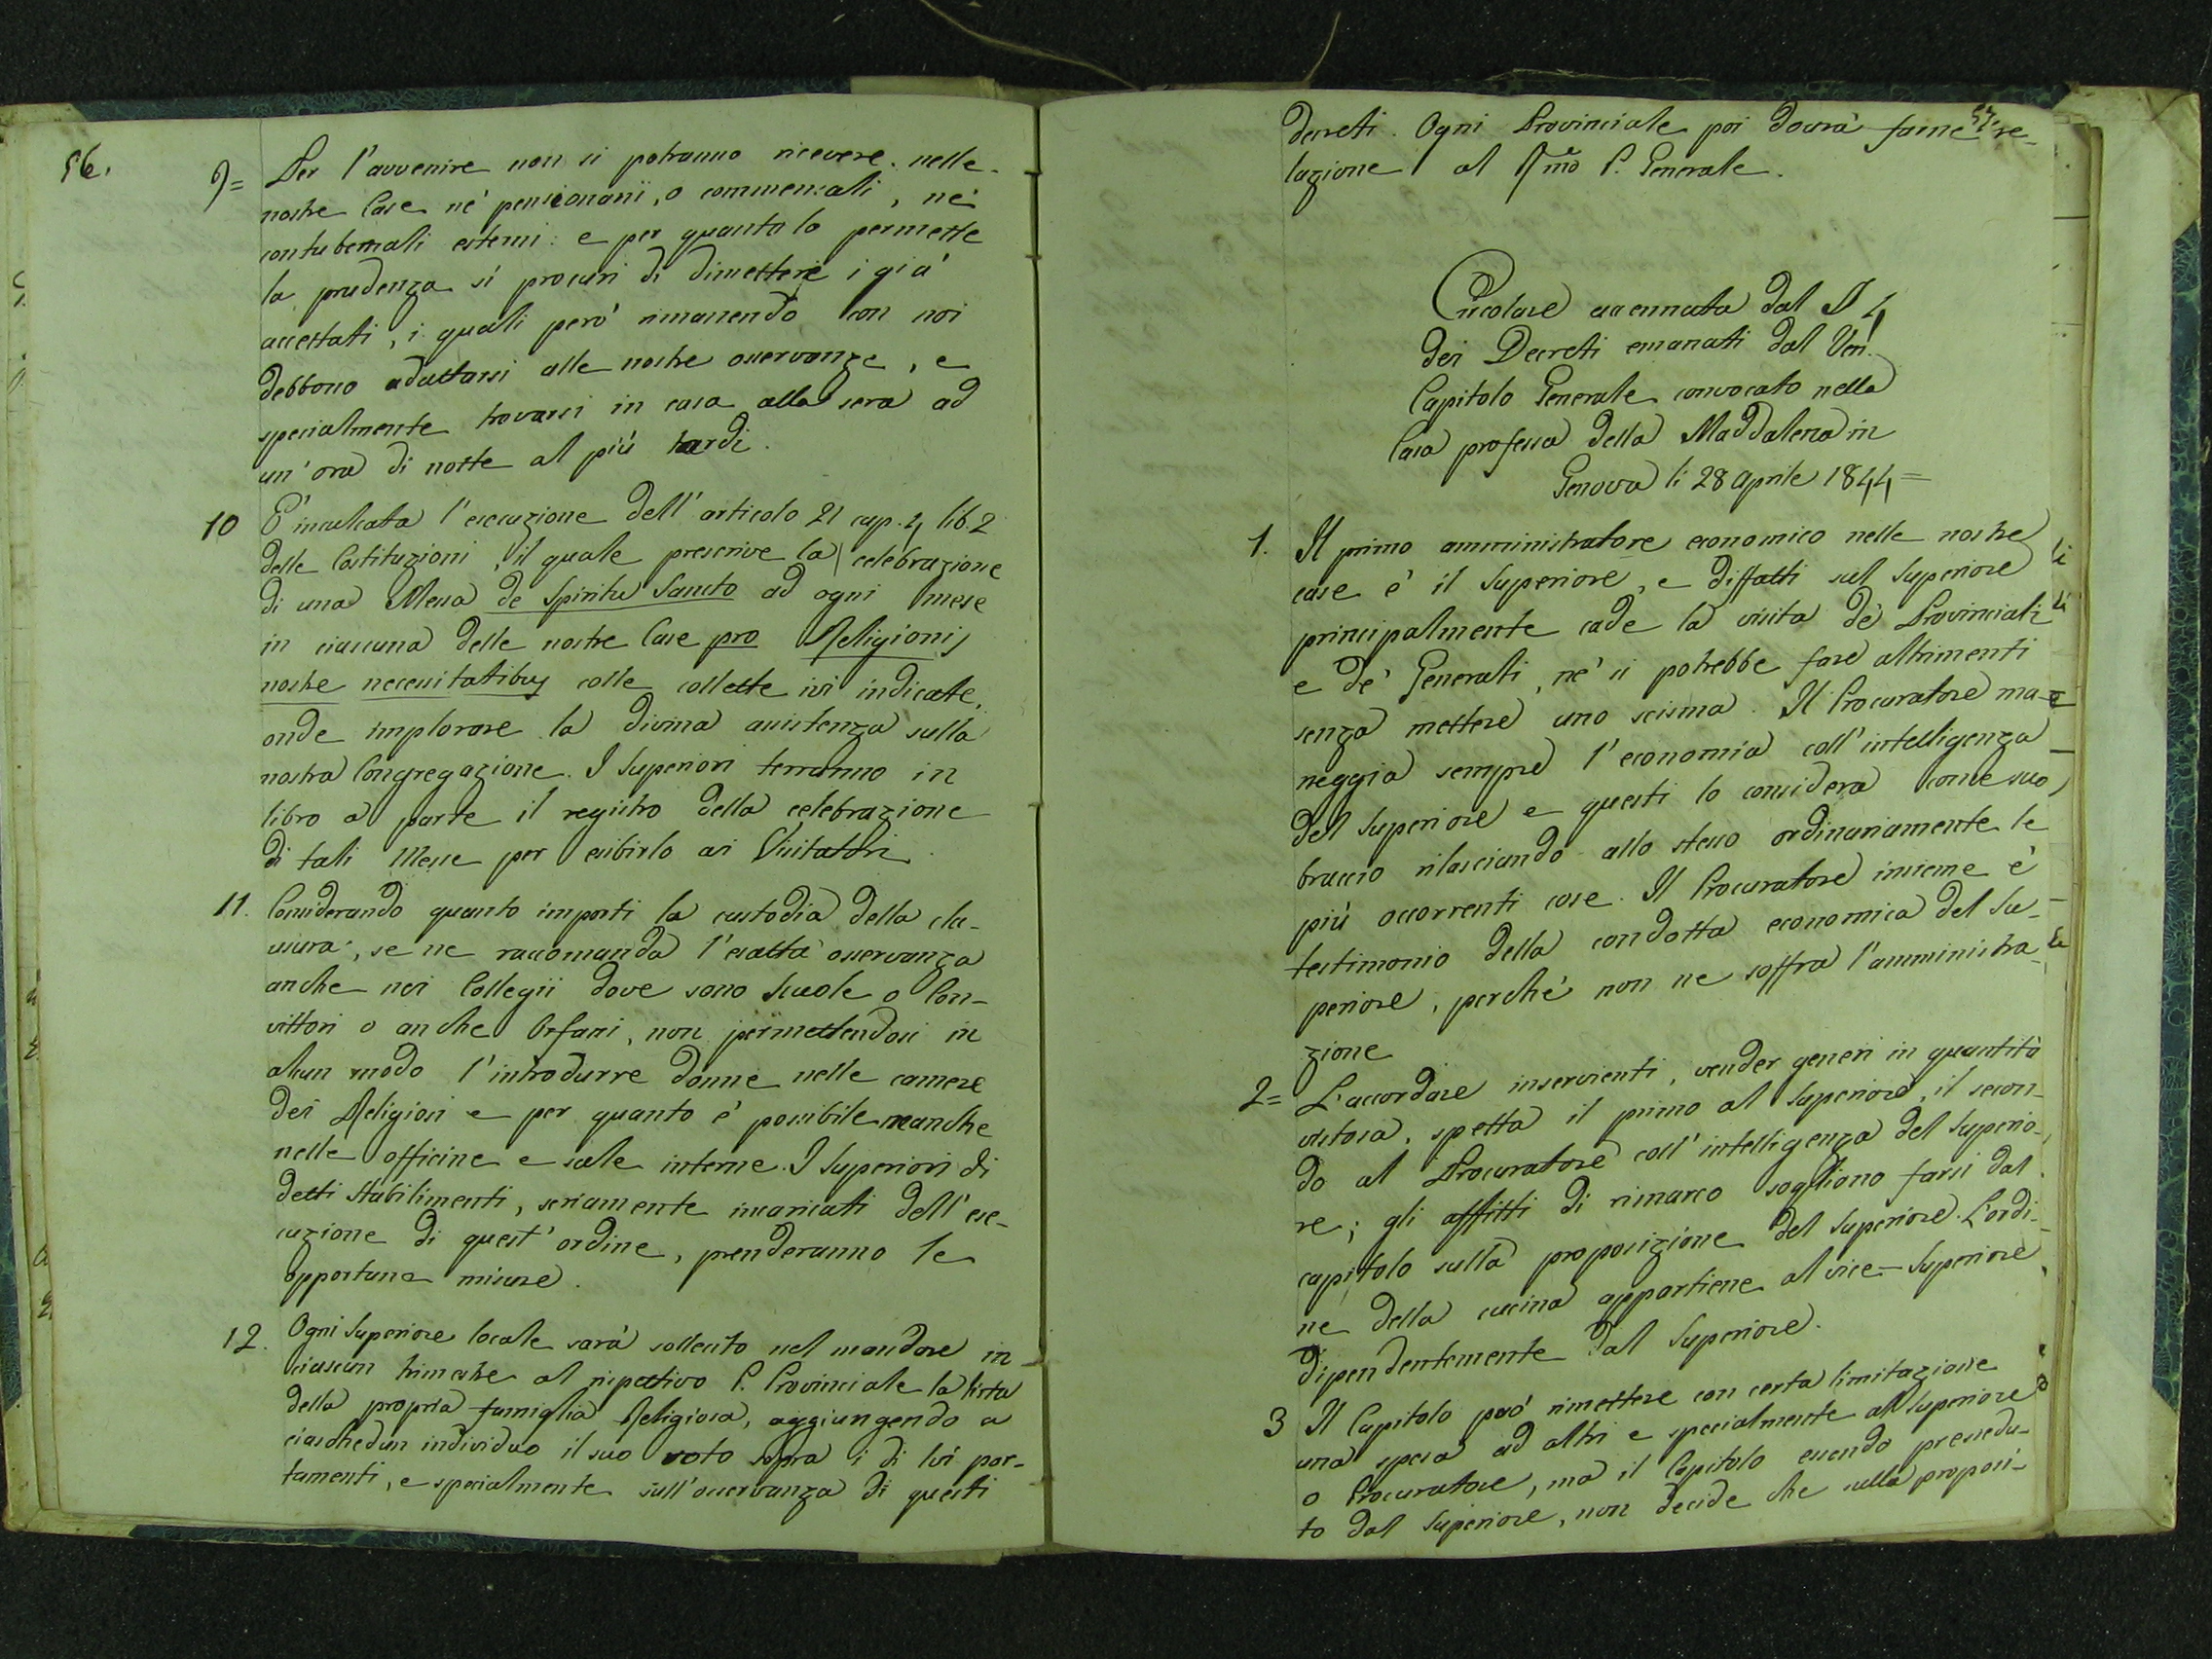 56.
9= Per l'avvenire non si potranno ricevere nelle
nostre Case nè pensionarii, o commensali, nè
contubernali esterni: e per quanto lo permette
la prudenza si procuri di dimettere i già
accettati, i quali però rimanendo con noi
debbono adattarsi alle nostre osservanze, e
specialmente trovarsi in casa alla sera ad
un'ora di notte al più tardi.
10 È inculcata l'esecuzione dell'articolo 21 cap. 4 lib. 2
delle Costituzioni, il quale prescrive la celebrazione
di una Messa de Spiritu Sancto ad ogni mese
in ciascuna delle nostre Case pro Religionis
nostre necessitatibus colle collette ivi indicate,
onde implorare la divina assistenza sulla
nostra Congregazione. I Superiori terranno in
libro a parte il registro della celebrazione
di tali Messe per esibirlo ai Visitatori.
11. Considerando quanto importi la custodia della cla-
usura, se ne raccomanda l'esatta osservanza
anche nei Collegii dove sono Scuole o Con-
vittori o anche Orfani, non permettendosi in
alcun modo l'introdurre donne nelle camere
dei Religiosi e per quanto è possibile neanche
nelle officine e scale interne. I Superiori di
detti stabilimenti, seriamente incaricati dell'ese-
cuzione di quest'ordine, prenderanno le
opportune misure.
12. Ogni Superiore locale sarà sollecito nel mandare in
ciascun trimestre al rispettivo P. Provinciale la lista
della propria famiglia Religiosa, aggiungendo a
ciaschedun individuo il suo voto sopra i di lui por-
tamenti, e specialmente sull'osservanza di questi
57.
decreti. Ogni Provinciale poi dovrà farne re-
lazione al Rmo P. Generale.
Circolare accennata dal § 4
dei Decreti emanati dal Ven.
Capitolo Generale convocato nella
Casa professa della Maddalena in
Genova li 28 Aprile 1844=
1. Il primo amministratore economico nelle nostre
case è il Superiore, e diffatti sul Superiore
principalmente cade la visita de' Provinciali
e de' Generali, nè si potrebbe fare altrimenti
senza mettere uno scisma. Il Procuratore ma-
neggia sempre l'economia coll'intelligenza
del Superiore e questi lo considera come suo
braccio rilasciando allo stesso ordinariamente le
più occorrenti cose. Il Procuratore insieme è
testimonio della condotta economica del Su-
periore, perchè non ne soffra l'amministra-
zione
2= L'accordare inservienti, vender generi in quantità
vistosa, spetta il primo al Superiore, il secon-
do al Procuratore coll'intelligenza del Superio-
re; gli affitti di rimarco sogliono farsi dal
capitolo sulla proposizione del Superiore. L'ordi-
ne della cucina appartiene al vice-Superiore
dipendentemente dal Superiore.
3 Il Capitolo può rimettere con certa limitazione
una spesa ad altri e specialmente al Superiore
o Procuratore, ma il Capitolo essendo presiedu-
to dal Superiore, non decide che sulla proposi-